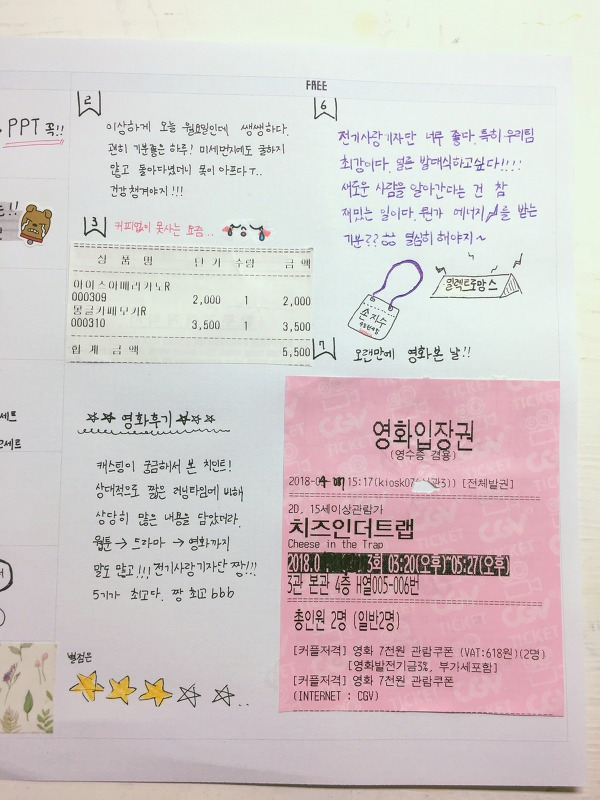 FREE
PPT 꼭!!
2
이상하게 오늘 월요일인데 쌩쌩하다.
괜히 기분좋은 하루! 미세먼지에도 굴하지
않고 돌아다녔더니 목이 아프다ㅜ..
건강 챙겨야지!!!
3
커피없이 못사는 요즘...
상 품 명 단 가 수량 금 액
아이스아메리카노R
000309 2,000 1 2,000
몽글카페모카R
000310 3,500 1 3,500
합 계 금 액 5,500
☆☆ 영화후기 ☆☆
캐스팅이 궁금해서 본 치인트!
상대적으로 짧은 러닝타임에 비해
상당히 많은 내용을 담았더라.
웹툰 → 드라마 → 영화까지
말도 많고!!! 전기사랑기자단 짱!!!
5기가 최고다. 짱 최고 bbb
별점은
6
전기사랑기자단 너무 좋다. 특히 우리팀
최강이다. 얼른 발대식하고싶다!!!!
새로운 사람을 알아간다는 건 참
재밌는 일이다. 뭔가 에너지를 받는
기분?? ㅎㅎ 열심히 해야지~
손지수
일렉트로맨스
7
오랜만에 영화본 날!!
영화입장권
(영수증 겸용)
15:17(kiosk07 [전체발권]
2D, 15세이상관람가
치즈인더트랩
Cheese in the Trap
2018.0 3회 03:20(오후)~05:27(오후)
3관 본관 4층 H열005-006번
총인원 2명 (일반2명)
[커플저격] 영화 7천원 관람쿠폰 (VAT:618원)(2명)
[영화발전기금3%, 부가세포함]
[커플저격] 영화 7천원 관람쿠폰
(INTERNET : CGV)